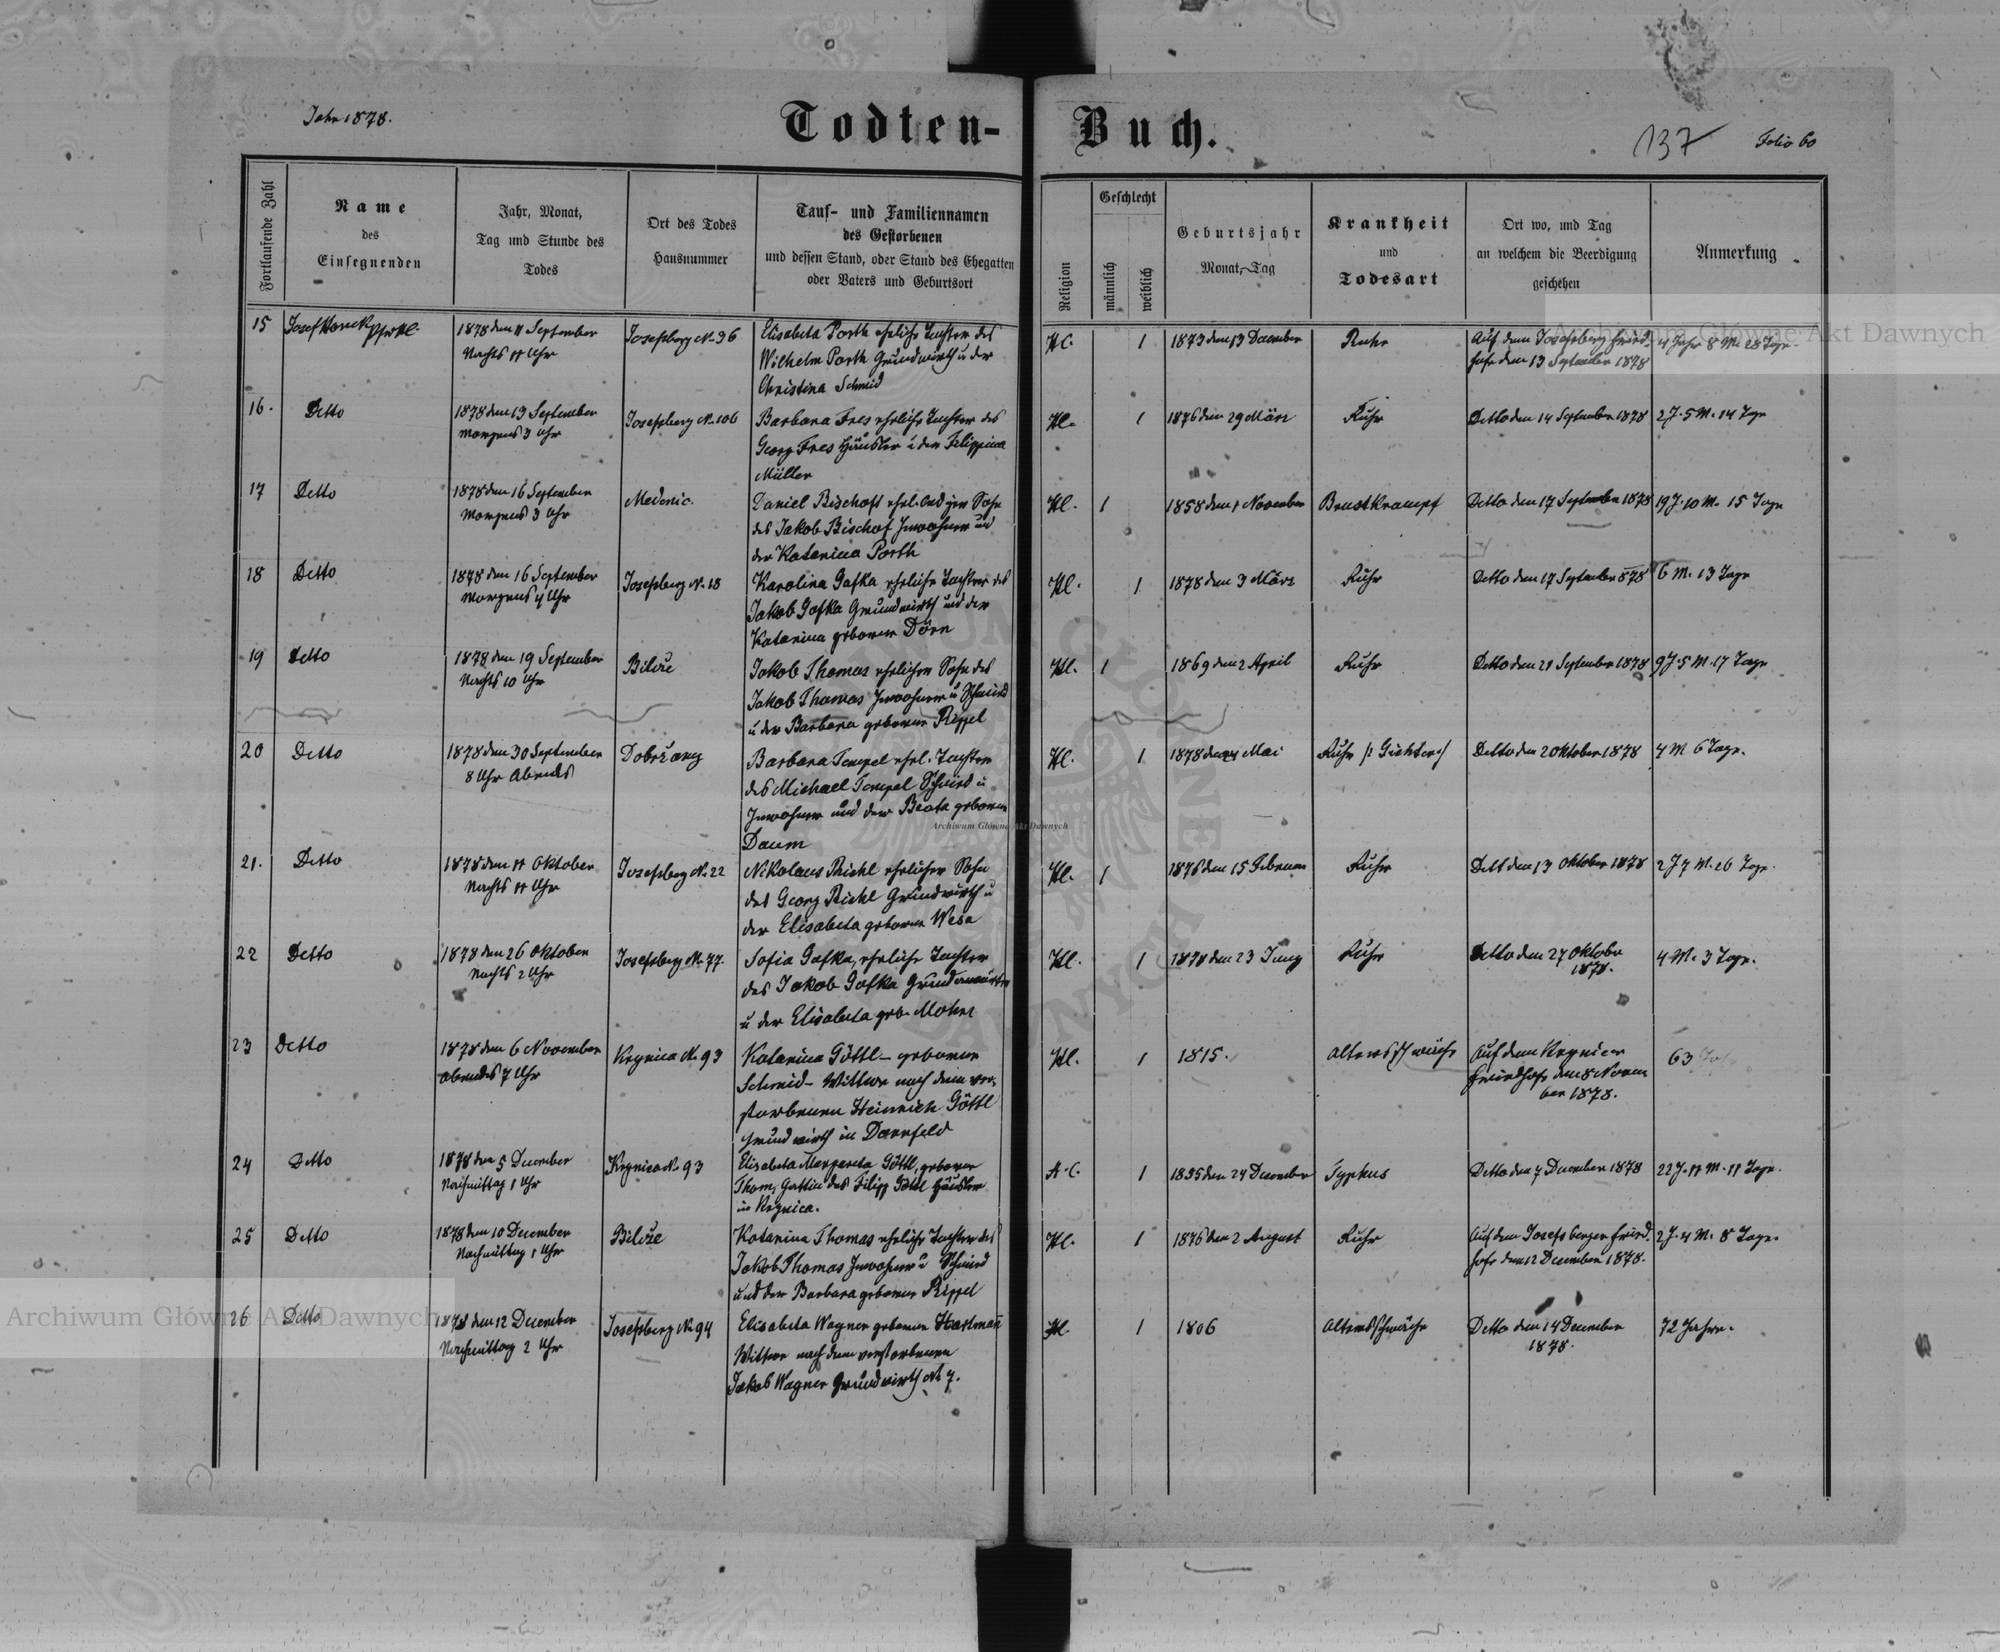 Jahr 1878.
Todten-Buch.
137
Folio 60
Fortlaufende Zahl
Name
des
Einsegnenden
Jahr, Monat,
Tag und Stunde des
Todes
Ort des Todes
Hausnummer
Tauf- und Familiennamen
des Gestorbenen
und dessen Stand, oder Stand des Ehegatten
oder Vaters und Geburtsort
Religion
Geschlecht
männlich
weiblich
Geburtsjahr
Monat, Tag
Krankheit
und
Todesart
Ort wo, und Tag
an welchem die Beerdigung
geschehen
Anmerkung
15 Josef
1878 den 11 September
Nachts 11 Uhr
Josefsberg No. 36
Elisabeta Porth ehrliche Tochter des
Wilhelm Porth Grundwirth u der
Christina Schmid
1
1873 den 13 December
Ruhr
Auf dem Josefsberg Fried-
hofe den 13 September 1878
4 Jahr 8 M. 28 Tage.
16. Detto
1878 den 13 September
Morgens 3 Uhr
Josefsberg No. 106
Barbara Fres ehrliche Tochter des
Georg Fres Häusler u der Filippina
Müller
Hl.
1
1876 den 29 März
Ruhr
Detto den 14 September 1878
2 J. 5 M. 14 Tage
17 Detto
1878 den 16 September
Morgens 3 Uhr
Medenic.
Daniel Bischoff ehrl. lediger Sohn
des Jakob Bischof Inwohner und
der Katarina Porth
Hl.
1
1858 den 1 November
Brustkrampf
Detto den 17 September 1878
19 J. 10 M. 15 Tage
18 Detto
1878 den 16 September
Morgens 4 Uhr
Josefsberg No. 18
Karolina Gafka ehrliche Tochter des
Jakob Gafka Grundwirth und der
Katarina geborene Dörn
Hl.
1
1878 den 3 März
Ruhr
Detto den 17 September 878
6 M. 13 Tage
19 Detto
1878 den 19 September
Nachts 10 Uhr
Bilcze
Jakob Thomas ehrlicher Sohn des
Jakob Thomas Inwohner u Schmied
u der Barbara geborene Rippel
Hl.
1
1869 den 2 April
Ruhr
Detto den 21 September 1878
9 J. 5 M. 17 Tage
20 Detto
1878 den 30 September
8 Uhr Abends
Dobrzany
Barbara Tempel ehrl. Tochter
des Michael Tempel Schmied u
Inwohner und der Beata geborene
Daum
Hl.
1
1878 den 24 Mai
Ruhr /: Gichter :/
Detto den 2 Oktober 1878
4 M 6 Tage.
21. Detto
1878 den 11 Oktober
Nachts 11 Uhr
Josefsberg No. 22
Nikolaus Riehl ehrlicher Sohn
des Georg Riehl Grundwirth u
der Elisabeta geborene Wese
Hl.
1
1876 den 15 Februar
Ruhr
Dett den 13 Oktober 1878
2 J 7 M. 26 Tage.
22 Detto
1878 den 26 Oktober
Nachts 2 Uhr
Josefsberg No. 77
Sofia Gafka, ehrliche Tochter
des Jakob Gafka
u der Elisabeta geb. Moher
Hl.
1
1878 den 23 Juny
Ruhr
Detto den 27 Oktober
1878.
4 M. 3 Tage.
23 Detto
1878 den 6 November
Abends 7 Uhr
Krynica No. 93
Katarina Göttl - geborene
Schmid - Wittwe nach dem ver-
storbenen Heinrich Göttl
Grundwirth in Dornfeld
Hl.
1
1815.
Altersschwäche
Auf dem Krynicer
Friedhofe den 8 Novem
ber 1878.
63
24 Detto
1878 den 5 December
Nachmittag 1 Uhr
Krynica No. 93
Elisabeta Margareta Göttl, geborene
Thom, Gattin des Filipp Göttl Häusler
in Krynica.
A. C.
1
1855 den 24 December
Typhus
Detto den 7 December 1878
22 J. 11 M. 11 Tage.
25 Detto
1878 den 10 December
Nachmittag 1 Uhr
Bilcze
Katarina Thomas ehrliche Tochter des
Jakob Thomas Inwohner u Schmied
und der Barbara geborene Rippel
Hl.
1
1876 den 2 August
Ruhr
Auf dem Josefsberger Fried-
hofe den 12 December 1878.
2 J. 4 M. 8 Tage.
26 Detto
1878 den 12 December
Nachmittag 2 Uhr
Josefsberg No. 94
Elisabeta Wagner geborene Hartman̄
Wittwe nach dem verstorbenen
Jakob Wagner Grundwirth No 7.
Hl
1
1806
Altersschwäche
Detto den 14 December
1878.
72 Jahre.
Archiwum Główne Akt Dawnych
Archiwum Główne Akt Dawnych
Archiwum Główne Akt Dawnych